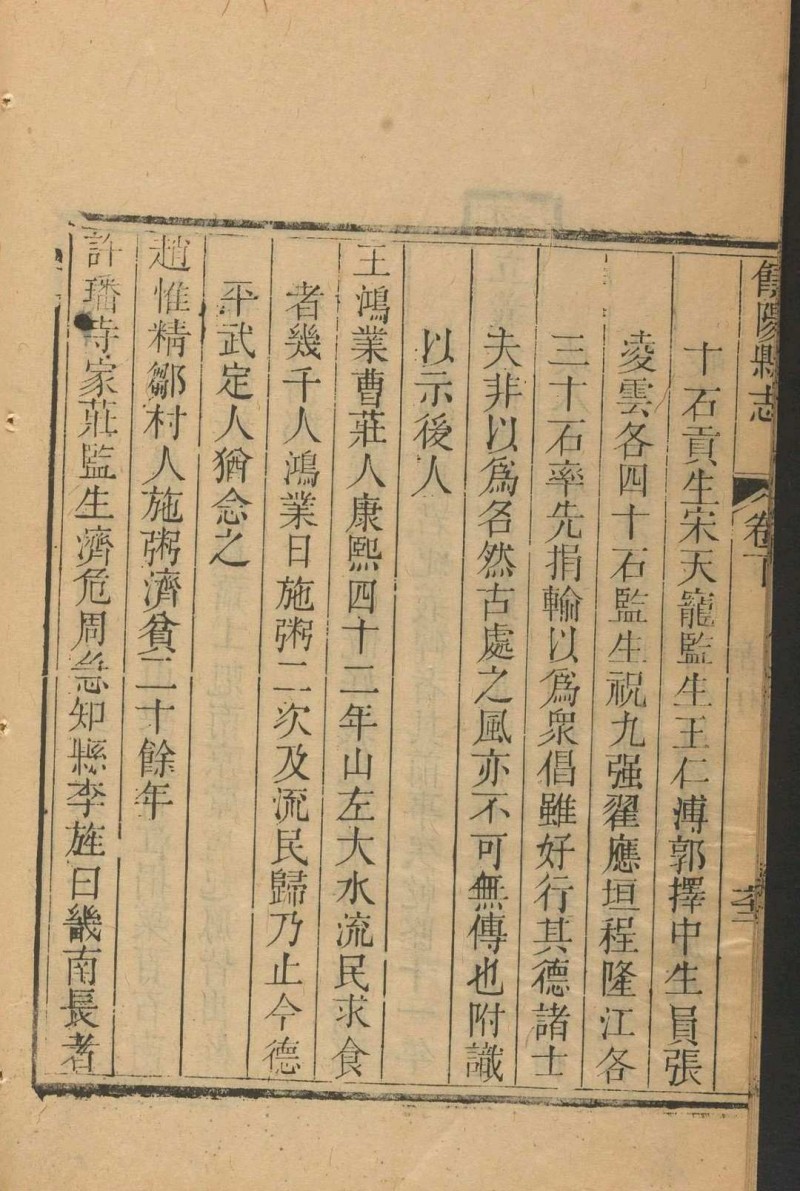 雋陽縣志
卷下
十石貢生宋天寵監生王仁溥郭擇中生員張
凌雲各四十石監生祝九强翟應垣程隆江各
三十石率先捐輸以爲衆倡雖好行其德諸士
夫非以爲名然古處之風亦不可無傳也附識
以示後人
王鴻業曹莊人康熙四十二年山左大水流民求食
者幾千人鴻業日施粥二次及流民歸乃止今德
平武定人猶念之
趙惟精鄒村人施粥濟貧二十餘年
許璠寺家莊監生濟危周急知縣李旌曰畿南長者